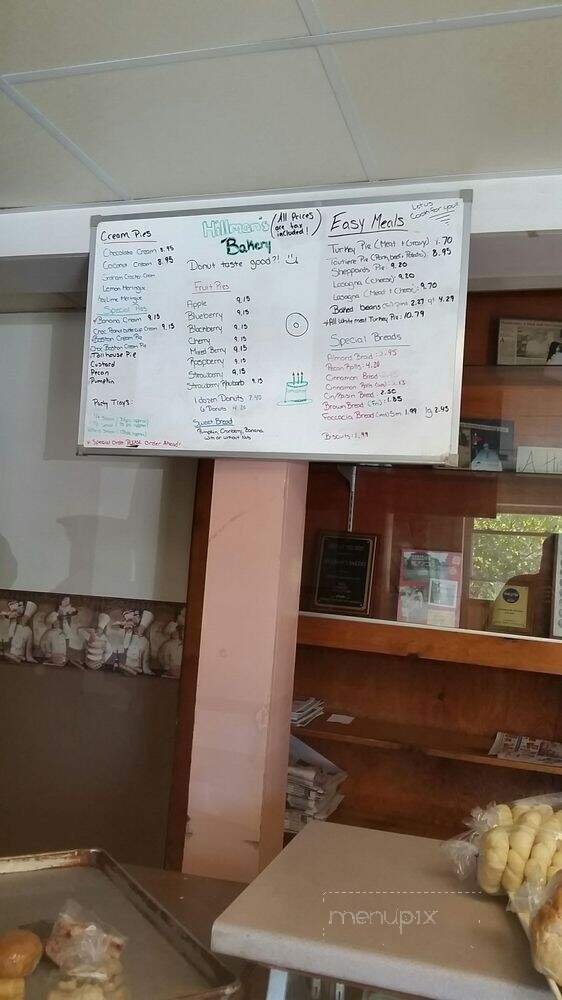 Cream Pies
Chocolate Cream 8.95
Coconut Cream 8.95
Graham Cracker Cream
Lemon Meringue
Key Lime Meringue
Special Pies
*Banana Cream 9.15
Choc Peanut Butter Cream 9.15
*Boston Cream Pie
Choc Boston Cream Pie
Toll house Pie
Custard
Pecan
Pumpkin
Party Trays:
* Special Order Please Order Ahead!
Hillman's
Bakery
(All Prices
are tax
included!)
Donut taste good?!
Fruit Pies
Apple 9.15
Blueberry 9.15
Blackberry 9.15
Cherry 9.15
Mixed Berry 9.15
Raspberry 9.15
Strawberry 9.15
Strawberry Rhubarb 9.15
1 dozen Donuts 7.40
6 Donuts 4.20
Sweet Bread
Pumpkin, Cranberry, Banana
with or without Nuts
Easy Meals
Let us
Cook for you!
Turkey Pie (Meat + Gravy) 9.70
Tourtiere Pie (Pork, beef, Potato) 8.95
Sheppards Pie 9.20
Lasagna (Cheese) 9.20
Lasagna (Meat + Cheese) 9.70
Baked beans 2.29 qt 4.29
*All White meat Turkey Pie: 10.79
Special Breads
Almond Braid 2.95
Pecan Rolls: 4.20
Cinnamon Bread
Cinnamon Rolls
Cin/Raisin Bread: 2.50
Brown Bread (Fri) 1.85
Foccocia Bread Sm 1.99 lg 2.45
Biscuits: 1.99
menupix